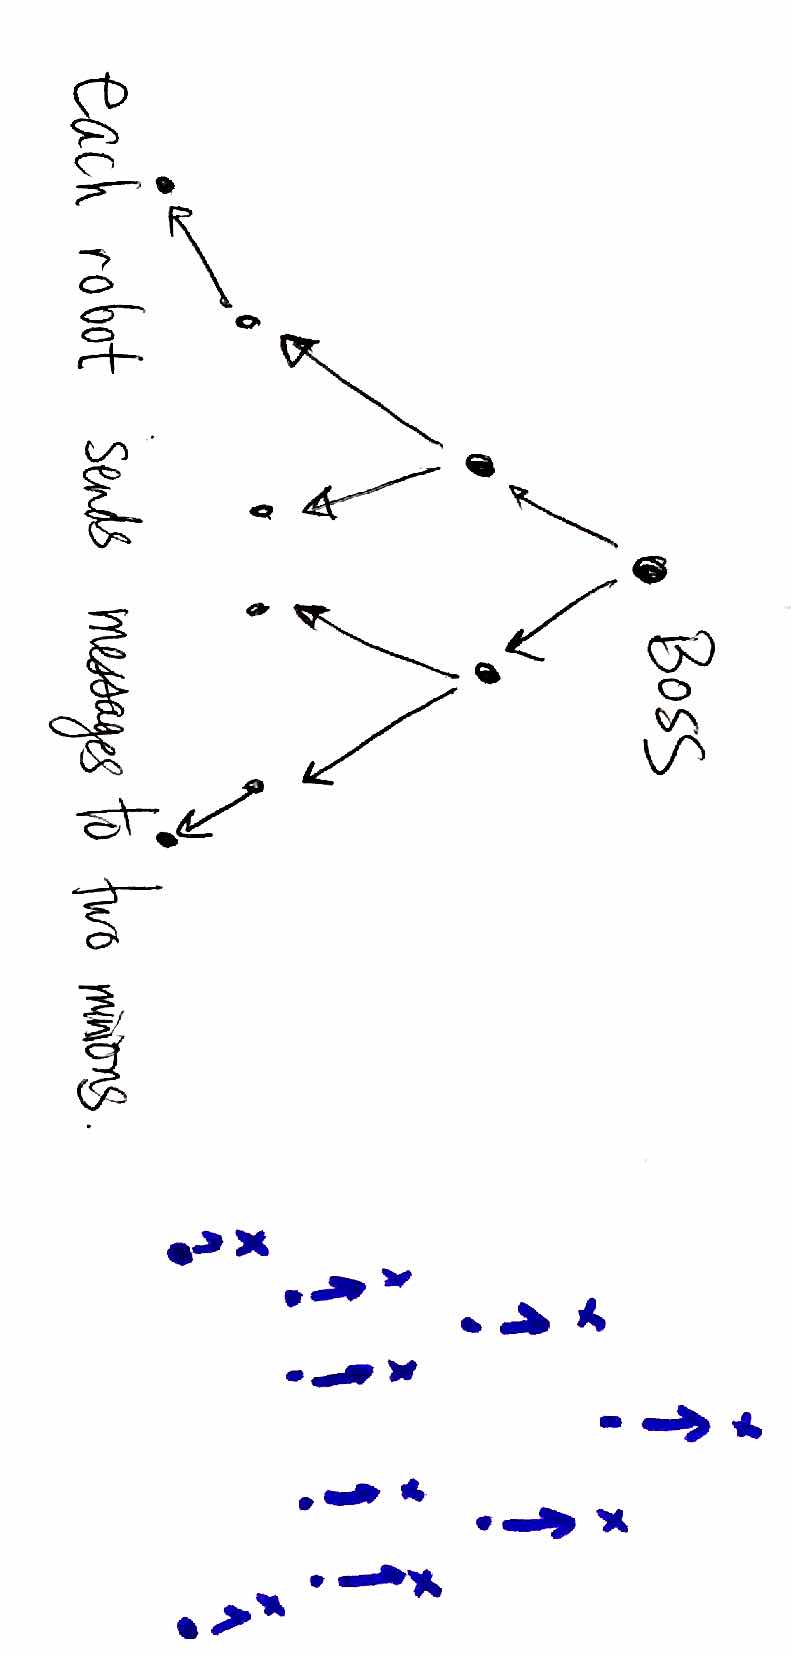 Boss
each robot sends messages to two minions.